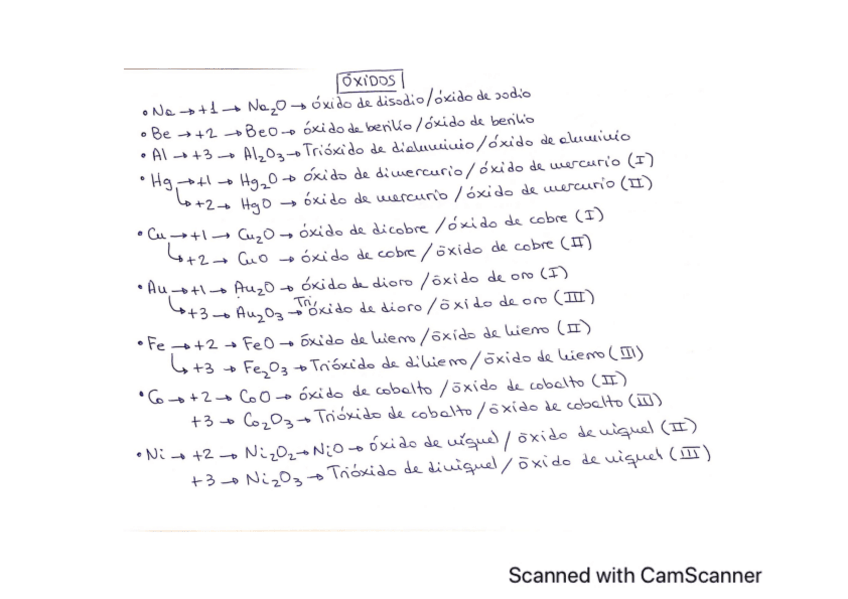 ÓXIDOS
• Na → +1 → Na₂O → óxido de disodio / óxido de sodio
• Be → +2 → BeO → óxido de berilio / óxido de berilio
• Al → +3 → Al₂O₃ → Trióxido de dialuminio / óxido de aluminio
• Hg → +1 → Hg₂O → óxido de dimercurio / óxido de mercurio (I)
↳ +2 → HgO → óxido de mercurio / óxido de mercurio (II)
• Cu → +1 → Cu₂O → óxido de dicobre / óxido de cobre (I)
↳ +2 → CuO → óxido de cobre / óxido de cobre (II)
• Au → +1 → Au₂O → óxido de dioro / óxido de oro (I)
↳ +3 → Au₂O₃ → Trióxido de dioro / óxido de oro (III)
• Fe → +2 → FeO → óxido de hierro / óxido de hierro (II)
↳ +3 → Fe₂O₃ → Trióxido de dihierro / óxido de hierro (III)
• Co → +2 → CoO → óxido de cobalto / óxido de cobalto (II)
+3 → Co₂O₃ → Trióxido de cobalto / óxido de cobalto (III)
• Ni → +2 → Ni₂O₂ → NiO → óxido de níquel / óxido de niquel (II)
+3 → Ni₂O₃ → Trióxido de diniquel / óxido de niquel (III)
Scanned with CamScanner